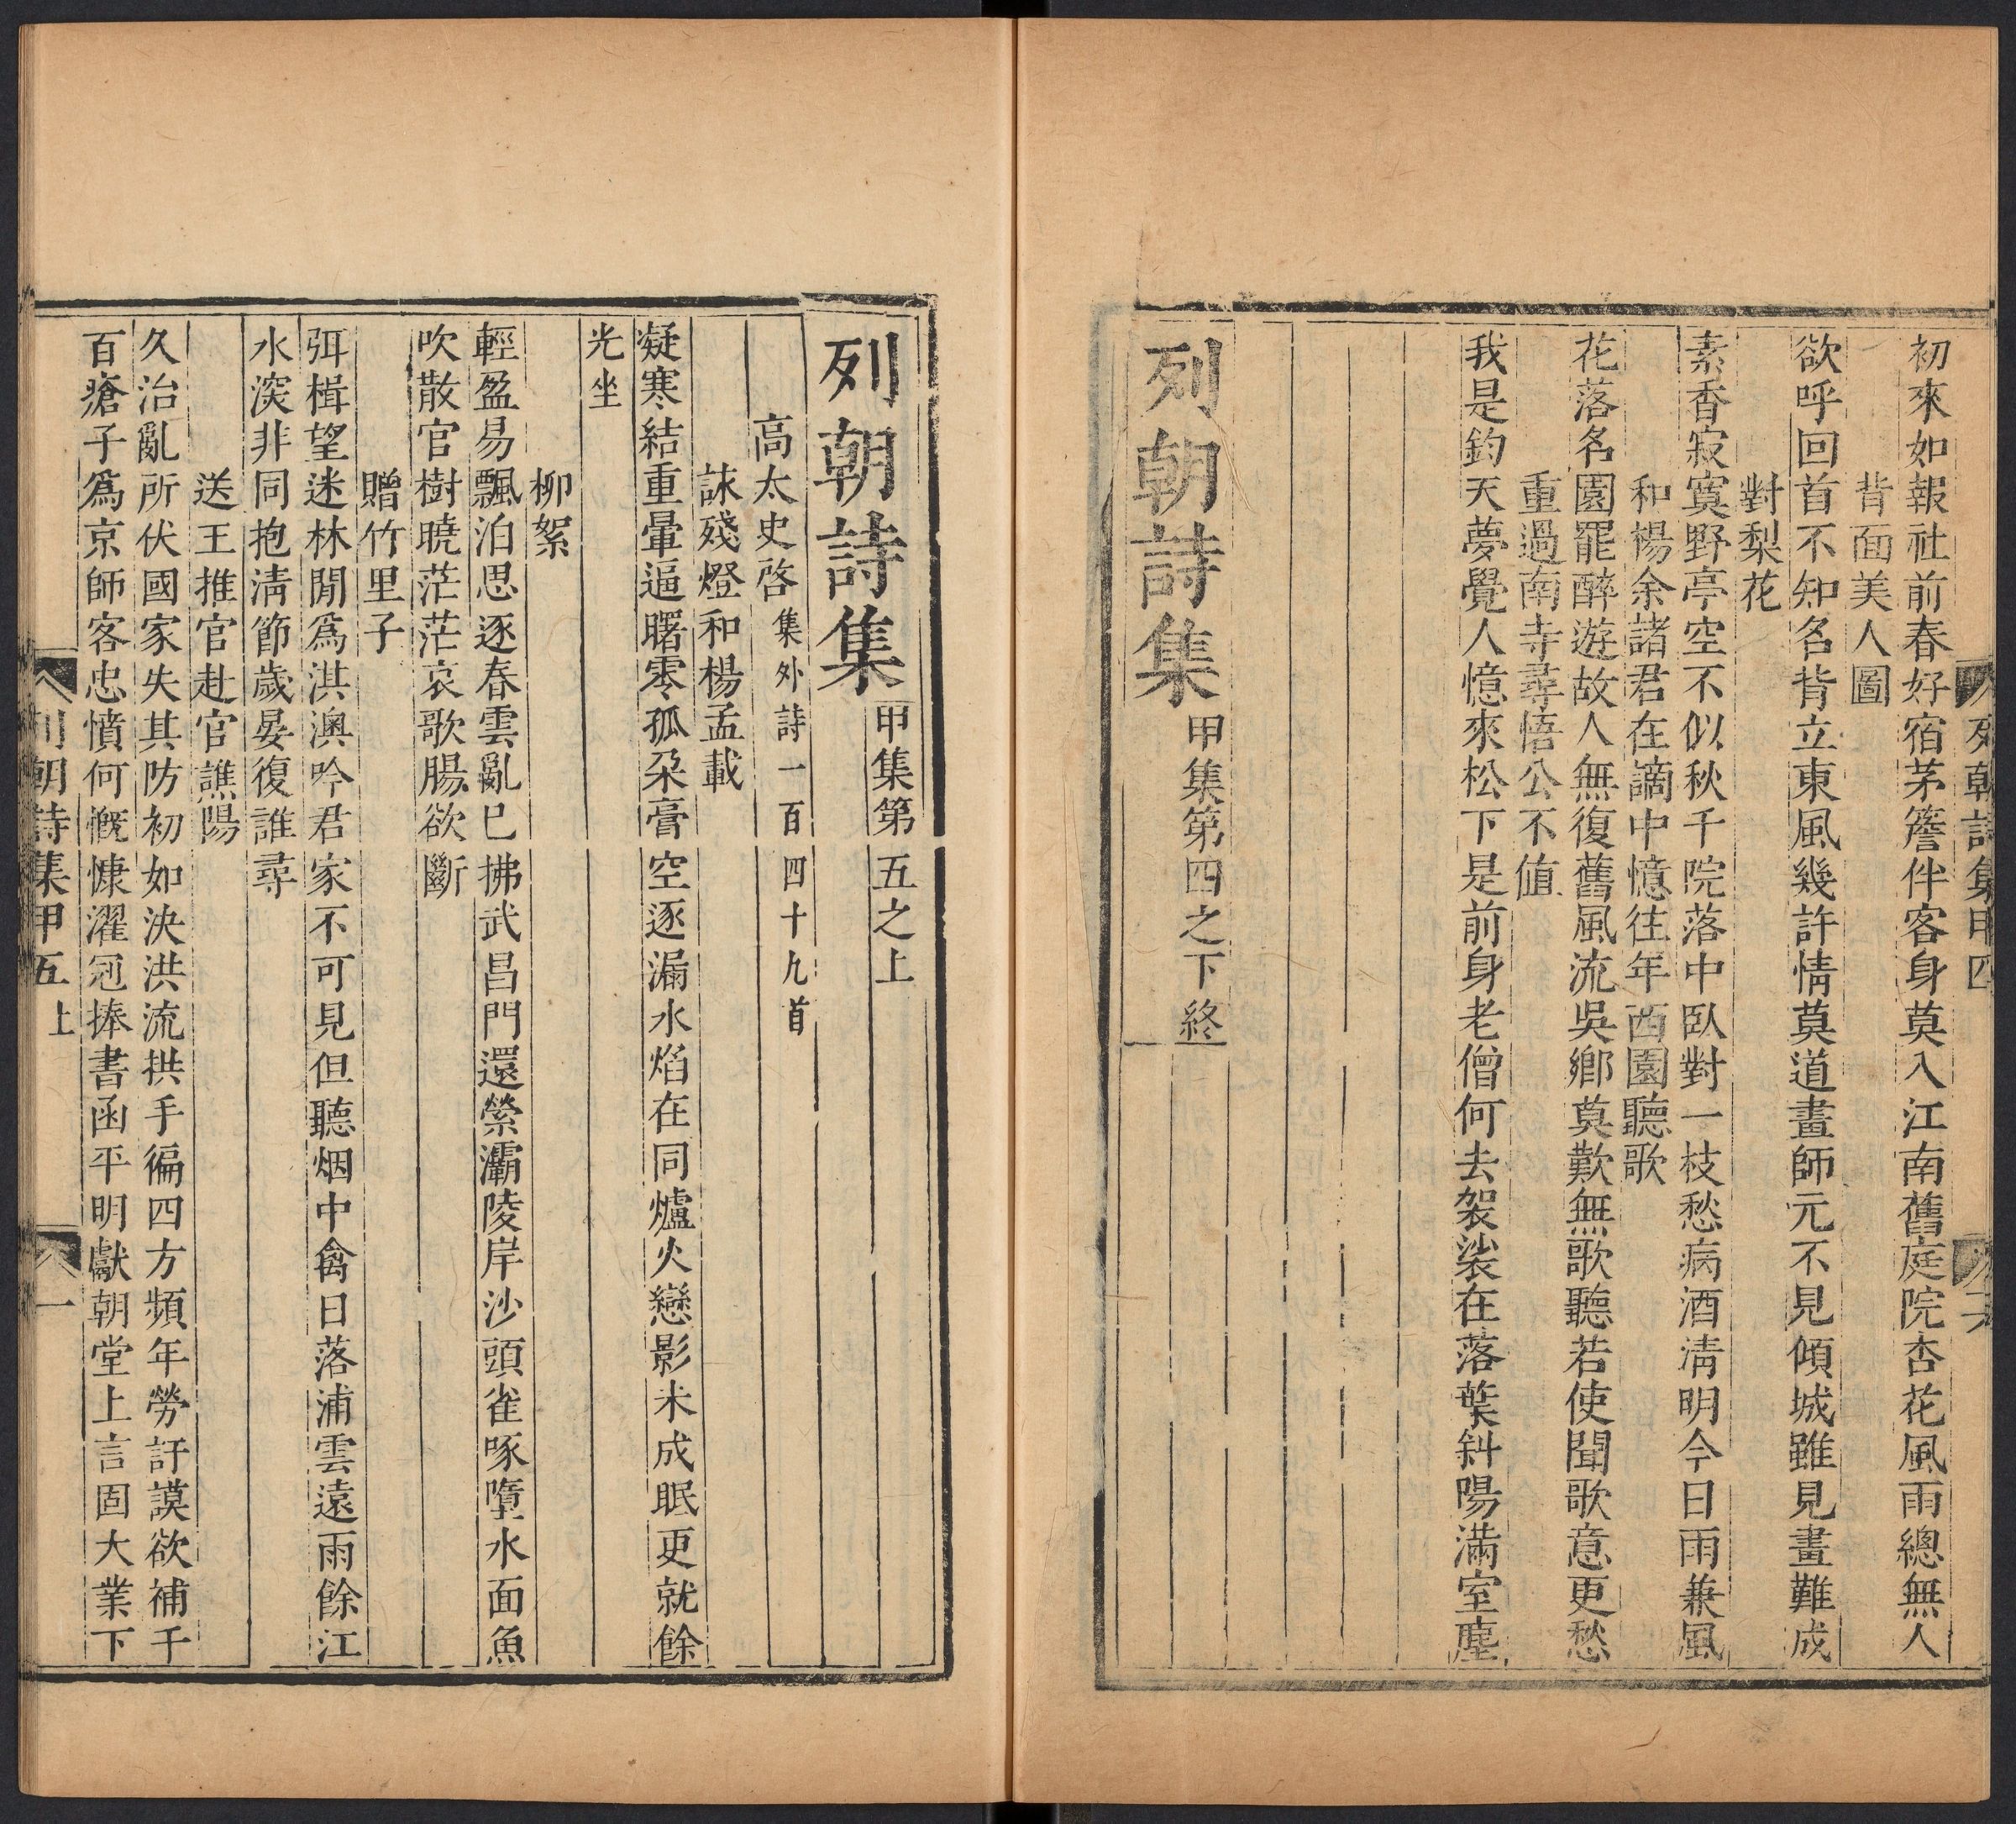 列朝詩集甲四
初來如報社前春好宿茅簷伴客身莫入江南舊庭院杏花風雨總無人
背面美人圖
欲呼回首不知名背立東風幾許情莫道畫師元不見傾城雖見畫難成
對梨花
素香寂寞野亭空不似秋千院落中臥對一枝愁病酒清明今日雨兼風
和楊余諸君在謫中憶往年西園聽歌
花落名園罷醉遊故人無復舊風流吳鄉莫歎無歌聽若使聞歌意更愁
重過南寺尋悟公不值
我是鈞天夢覺人憶來松下是前身老僧何去袈裟在落葉斜陽滿室塵
列朝詩集 甲集第四之下終
列朝詩集 甲集第五之上
高太史啓 集外詩一百四十九首
詠殘燈和楊孟載
凝寒結重暈逼曙零孤朶膏空逐漏水焰在同爐火戀影未成眠更就餘
光坐
柳絮
輕盈易飄泊思逐春雲亂已拂武昌門還縈灞陵岸沙頭雀啄墮水面魚
吹散官樹曉茫茫哀歌腸欲斷
贈竹里子
弭楫望迷林閒爲淇澳吟君家不可見但聽烟中禽日落浦雲遠雨餘江
水深非同抱淸節歲晏復誰尋
送王推官赴官譙陽
久治亂所伏國家失其防初如決洪流拱手徧四方頻年勞訏謨欲補千
百瘡子爲京師客忠憤何慨慷濯冠捧書函平明獻朝堂上言固大業下
列朝詩集甲五上
一